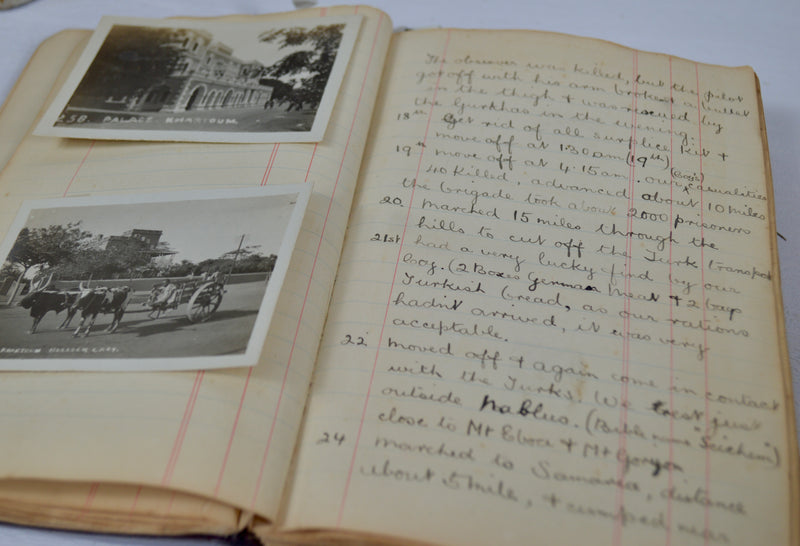 258. PALACE. KHARTOUM.
BULLOCK CART.
The observer was killed, but the pilot
got off with his arm broken a bullet
in the thigh & was rescued by
the Gurkhas in the evening.
18th Get rid of all surplice kit &
move off at 1.30 am (19th)
19th move off at 4.15 am. our (Coy's) casualities
40 killed, advanced about 10 miles
the brigade took about 2000 prisoners
20. marched 15 miles through the
hills to cut off the Turk transport
21st had a very lucky find by our
boy. (2 Boxes German meat & 2 bags
Turkish bread, as our rations
hadn't arrived, it was very
acceptable.
22 moved off & again come in contact
with the Turks. We rest just
outside Nablus. (Bible name "Seichem")
close to Mt Eboa & Mt Gorzon
24 marched to Samaria, distance
about 5 mile, & camped near